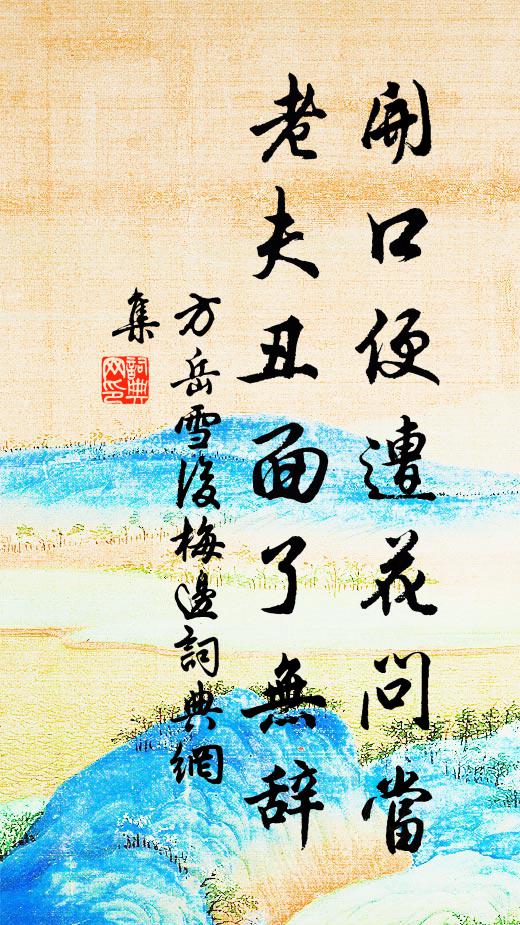 開口便遭花問當
老夫丑面了無辞
方岳雪後梅邊詞典網
集
詞典
网印